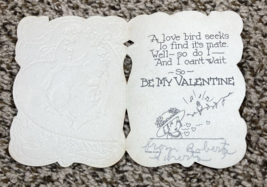 A love bird seeks
To find it's mate.
Well-so do I—
And I can't wait
-So-
BE MY VALENTINE
from Robert